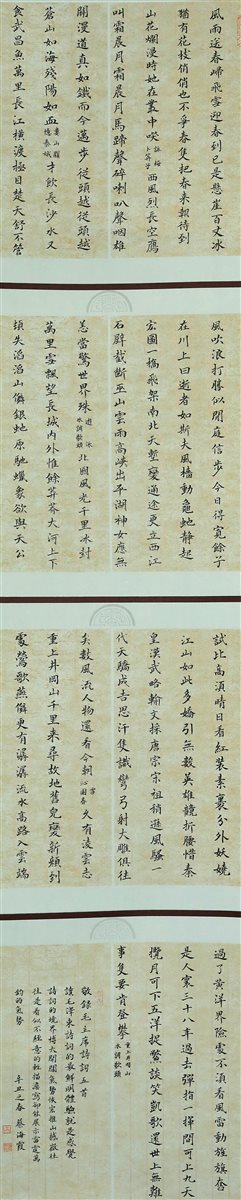 風雨送春歸飛雪迎春到已是懸崖百丈冰
猶有花枝俏俏也不爭春隻把春來報待到
山花爛漫時她在叢中笑 詠梅 卜算子 西風烈長空鴈
叫霜晨月霜晨月馬蹄聲碎喇叭聲咽雄
關漫道真如鐵而今邁步從頭越從頭越
蒼山如海殘陽如血 婁山關 憶秦娥 才飲長沙水又
食武昌魚萬里長江橫渡極目楚天舒不管
風吹浪打勝似閒庭信步今日得寬餘子
在川上曰逝者如斯夫風檣動龜蛇靜起
宏圖一橋飛架南北天塹變通途更立西江
石壁截斷巫山雲雨高峽出平湖神女應無
恙當驚世界殊 游泳 水調歌頭 北國風光千里冰封
萬里雪飄望長城內外惟餘莽莽大河上下
頓失滔滔山舞銀蛇原馳蠟象欲與天公
試比高須晴日看紅裝素裹分外妖嬈
江山如此多嬌引無數英雄競折腰惜秦
皇漢武略輸文採唐宗宋祖稍遜風騷一
代天驕成吉思汗隻識彎弓射大雕俱往
矣數風流人物還看今朝 雪 沁園春 久有凌雲志
重上井岡山千里來尋故地舊貌變新顏到
處鶯歌燕舞更有潺潺流水高路入雲端
過了黃洋界險處不須看風雷動旌旗奮
是人寰三十八年過去彈指一揮間可上九天
攬月可下五洋捉鱉談笑凱歌還世上無難
事隻要肯登攀 重上井岡山 水調歌頭
敬錄毛主席詩詞五首
讀毛澤東詩詞的最鮮明體驗就是感覺
詩詞的境界博大開闊氣勢恢宏排山
往是看似不經意的輕描淡寫卻能展示雷霆萬
鈞的氣勢 辛丑之春 蔡海霞